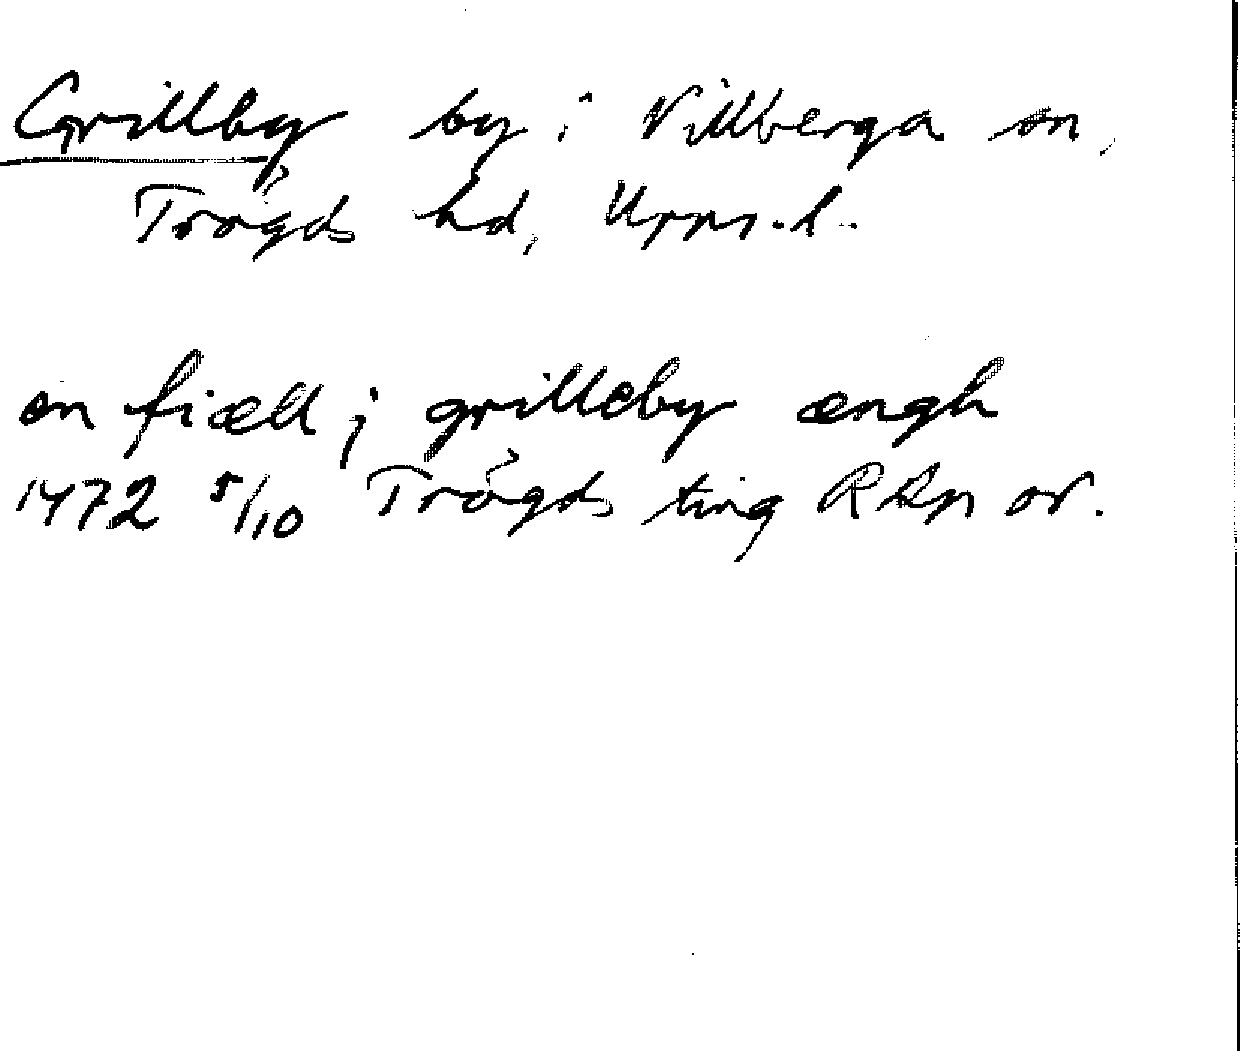 Grillby by i Villberga sn,
Trögds hd, Upps.l.
en fiæll j grilleby ængh
1472 5/10 Trögds ting RAp or.